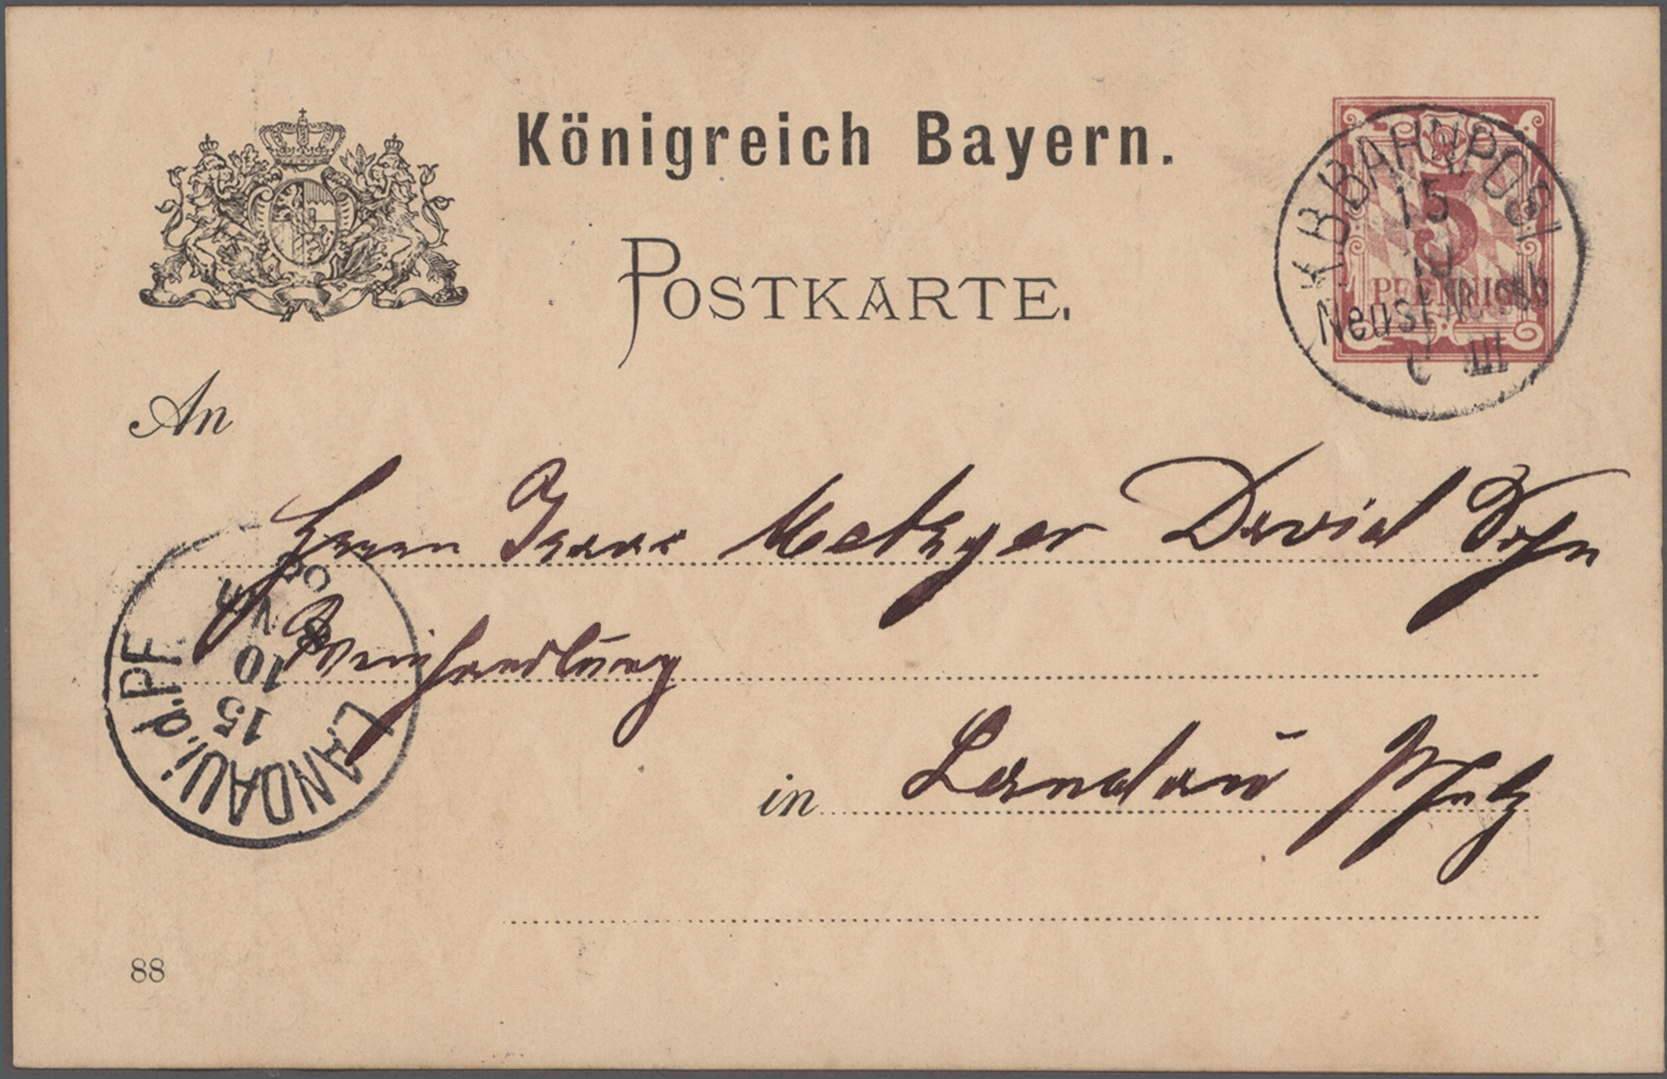 Königreich Bayern.
POSTKARTE.
5
PFENNIG
K.B.BAHNPOST
15
10
Neust. Weissb
III
An
Herrn Isaac Metzger David Sohn
Weinhandlung
in Landau Pfalz
LANDAU i. d. PF.
15
10
88